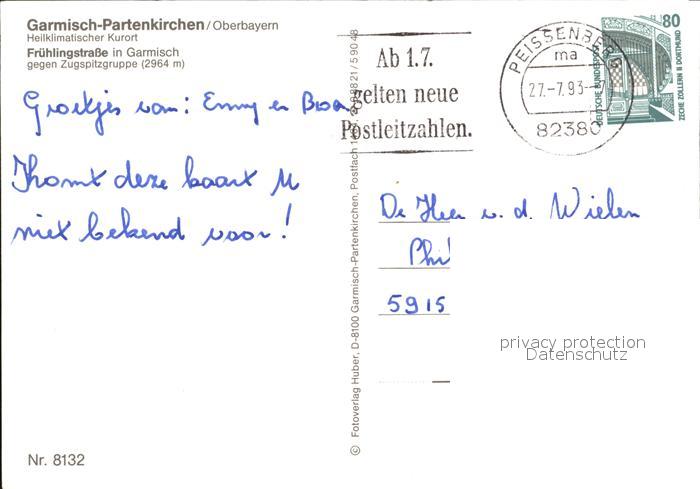 Garmisch-Partenkirchen / Oberbayern
Heilklimatischer Kurort
Frühlingstraße in Garmisch
gegen Zugspitzgruppe (2964 m)
Groetjes van: Emmy en
Khomt deze kaart U
niet bekend voor!
Nr. 8132
© Fotoverlag Huber, D-8100 Garmisch-Partenkirchen, Postfach
8821/59048
Ab 1.7.
gelten neue
Postleitzahlen.
PEISSENBERG
ma
27.-7.93.--7
82380
80
DEUTSCHE BUNDESPOST
ZECHE ZOLLERN II DORTMUND
De Heer v. d. Wielen
Phi
5915
privacy protection
Datenschutz